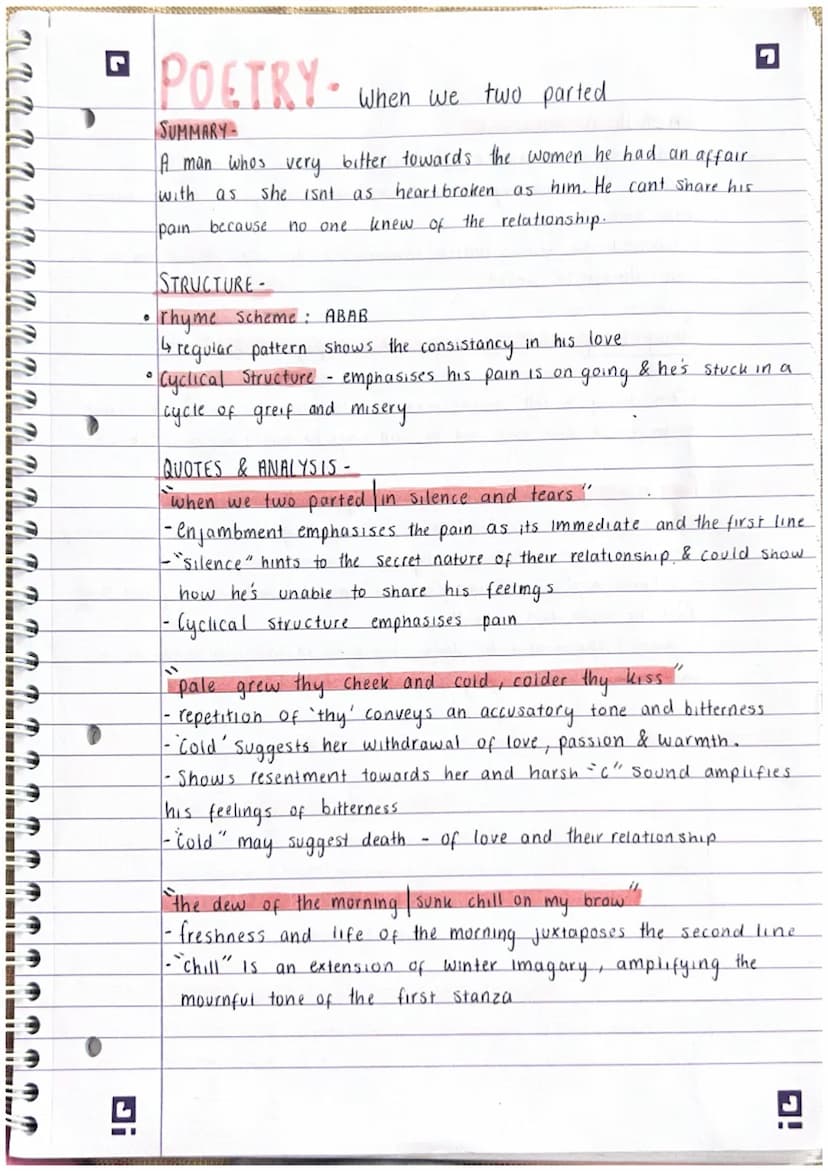 POETRY- When we two parted
SUMMARY-
A man whos very bitter towards the women he had an affair
with as she isnt as heartbroken as him. He cant share his
pain because no one knew of the relationship.
STRUCTURE-
• rhyme scheme: ABAB
↳ regular pattern shows the consistancy in his love
• Cyclical Structure - emphasises his pain is on going & he's stuck in a
cycle of greif and misery
QUOTES & ANALYSIS-
"when we two parted|in silence and tears"
- enjambment emphasises the pain as its immediate and the first line
- "silence" hints to the secret nature of their relationship & could show
how he's unable to share his feelings
- Cyclical structure emphasises pain
"pale grew thy cheek and cold, colder thy kiss"
- repetition of 'thy' conveys an accusatory tone and bitterness
- 'Cold' suggests her withdrawal of love, passion & warmth.
- Shows resentment towards her and harsh "c" sound amplifies
his feelings of bitterness
- "Cold" may suggest death - of love and their relationship
"the dew of the morning|sunk chill on my brow"
- freshness and life of the morning juxtaposes the second line
- "chill" is an extension of winter imagary, amplifying the
mournful tone of the first stanza